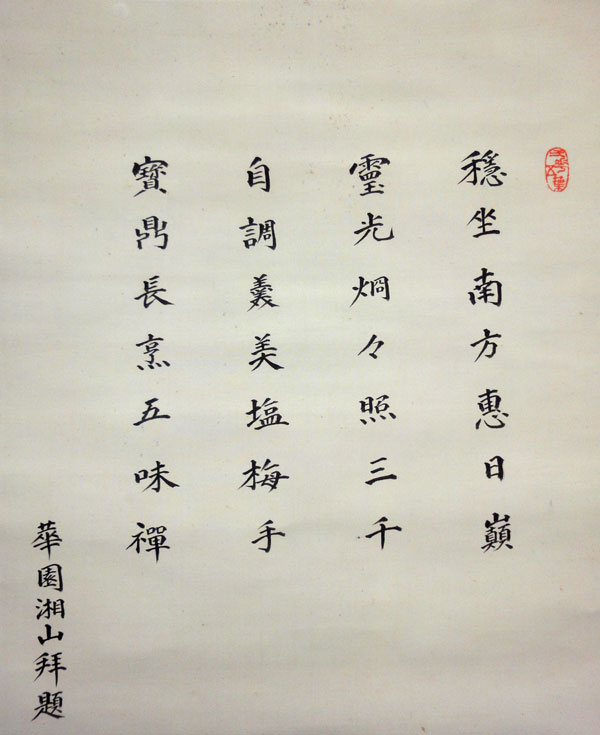 穩坐南方惠日巔
靈光烱々照三千
自調羹美塩梅手
寶鼎長烹五味禪
華園湘山拜題